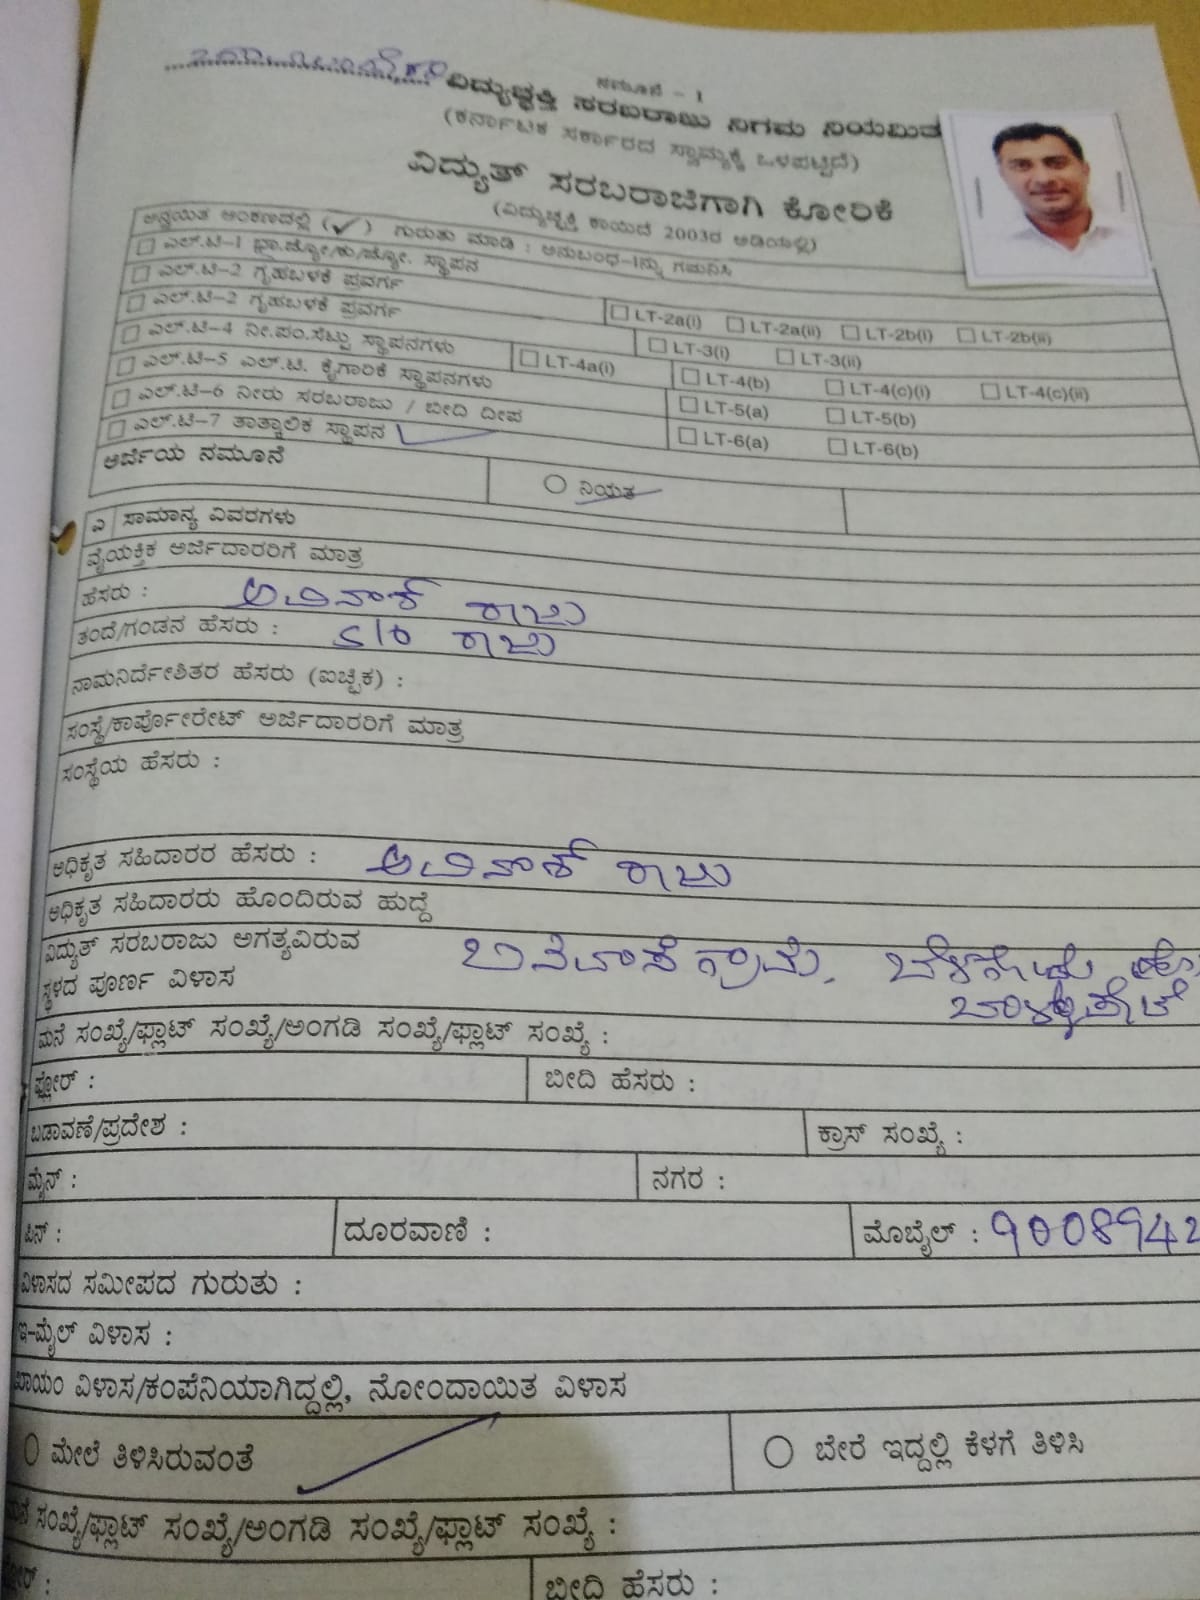 ನಮೂನೆ - 1
ವಿದ್ಯುಚ್ಛಕ್ತಿ ಸರಬರಾಜು ನಿಗಮ ನಿಯಮಿತ
(ಕರ್ನಾಟಕ ಸರ್ಕಾರದ ಸ್ವಾಮ್ಯಕ್ಕೆ ಒಳಪಟ್ಟಿದೆ)
ವಿದ್ಯುತ್ ಸರಬರಾಜಿಗಾಗಿ ಕೋರಿಕೆ
(ವಿದ್ಯುಚ್ಛಕ್ತಿ ಕಾಯಿದೆ 2003ರ ಅಡಿಯಲ್ಲಿ)
ಅನ್ವಯಿತ ಅಂಕಣದಲ್ಲಿ (✓) ಗುರುತು ಮಾಡಿ : ಅನುಬಂಧ-1ನ್ನು ಗಮನಿಸಿ
ಎಲ್.ಟಿ-1 ಭಾ.ಜ್ಯೋ/ಕು/ಜ್ಯೋ. ಸ್ಥಾಪನ
ಎಲ್.ಟಿ-2 ಗೃಹಬಳಕೆ ಪ್ರವರ್ಗ
ಎಲ್.ಟಿ-2 ಗೃಹಬಳಕೆ ಪ್ರವರ್ಗ LT-2a(i) LT-2a(ii) LT-2b(i) LT-2b(ii)
ಎಲ್.ಟಿ-4 ನೀ.ಪಂ.ಸೆಟ್ಟು ಸ್ಥಾಪನಗಳು LT-3(i) LT-3(ii)
ಎಲ್.ಟಿ-5 ಎಲ್.ಟಿ. ಕೈಗಾರಿಕೆ ಸ್ಥಾಪನಗಳು LT-4a(i) LT-4(b) LT-4(c)(i) LT-4(c)(ii)
ಎಲ್.ಟಿ-6 ನೀರು ಸರಬರಾಜು / ಬೀದಿ ದೀಪ LT-5(a) LT-5(b)
ಎಲ್.ಟಿ-7 ತಾತ್ಕಾಲಿಕ ಸ್ಥಾಪನ LT-6(a) LT-6(b)
ಅರ್ಜಿಯ ನಮೂನೆ ನಿಯತ
ಎ ಸಾಮಾನ್ಯ ವಿವರಗಳು
ವೈಯಕ್ತಿಕ ಅರ್ಜಿದಾರರಿಗೆ ಮಾತ್ರ
ಹೆಸರು : ಅವಿನಾಶ್ ರಾಜು
ತಂದೆ/ಗಂಡನ ಹೆಸರು : S/o ರಾಜು
ನಾಮನಿರ್ದೇಶಿತರ ಹೆಸರು (ಐಚ್ಛಿಕ) :
ಸಂಸ್ಥೆ/ಕಾರ್ಪೋರೇಟ್ ಅರ್ಜಿದಾರರಿಗೆ ಮಾತ್ರ
ಸಂಸ್ಥೆಯ ಹೆಸರು :
ಅಧಿಕೃತ ಸಹಿದಾರರ ಹೆಸರು : ಅವಿನಾಶ್ ರಾಜು
ಅಧಿಕೃತ ಸಹಿದಾರರು ಹೊಂದಿರುವ ಹುದ್ದೆ
ವಿದ್ಯುತ್ ಸರಬರಾಜು ಅಗತ್ಯವಿರುವ
ಸ್ಥಳದ ಪೂರ್ಣ ವಿಳಾಸ
ಮನೆ ಸಂಖ್ಯೆ/ಫ್ಲಾಟ್ ಸಂಖ್ಯೆ/ಅಂಗಡಿ ಸಂಖ್ಯೆ/ಫ್ಲಾಟ್ ಸಂಖ್ಯೆ :
ಫ್ಲೋರ್ : ಬೀದಿ ಹೆಸರು :
ಬಡಾವಣೆ/ಪ್ರದೇಶ : ಕ್ರಾಸ್ ಸಂಖ್ಯೆ :
ಮೈನ್ : ನಗರ :
ಪಿನ್ : ದೂರವಾಣಿ : ಮೊಬೈಲ್ : 9008942
ವಿಳಾಸದ ಸಮೀಪದ ಗುರುತು :
ಇ-ಮೈಲ್ ವಿಳಾಸ :
ಖಾಯಂ ವಿಳಾಸ/ಕಂಪೆನಿಯಾಗಿದ್ದಲ್ಲಿ, ನೋಂದಾಯಿತ ವಿಳಾಸ
ಮೇಲೆ ತಿಳಿಸಿರುವಂತೆ ಬೇರೆ ಇದ್ದಲ್ಲಿ ಕೆಳಗೆ ತಿಳಿಸಿ
ಸಂಖ್ಯೆ/ಫ್ಲಾಟ್ ಸಂಖ್ಯೆ/ಅಂಗಡಿ ಸಂಖ್ಯೆ/ಫ್ಲಾಟ್ ಸಂಖ್ಯೆ :
ಬೀದಿ ಹೆಸರು :